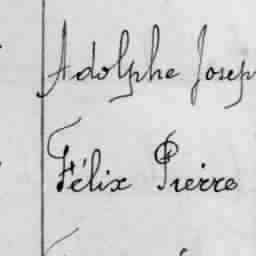 Adolphe Josep
Félix Pierre